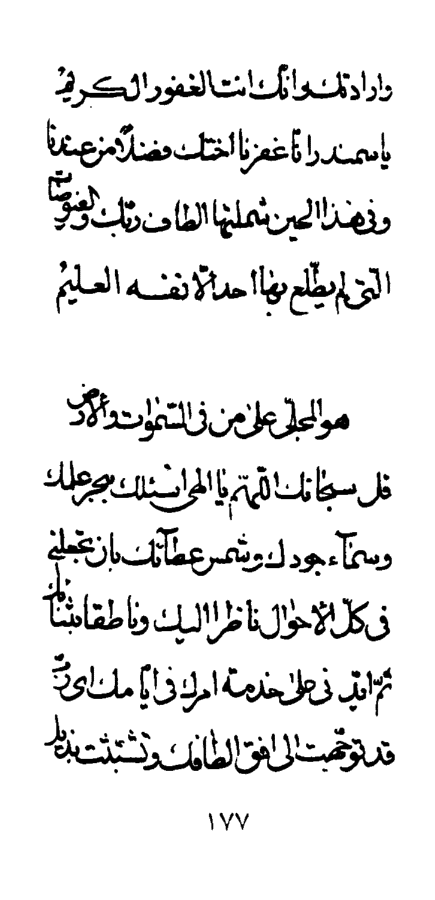 وارادتك وانّك انت الغفور الكريم
يا سمندر انّا غفرنا اختك فضلاً من عندنا
وفی هذا الحین شملتها الطاف ربّك والفیوضات
الّتی لم یطّلع بها احد الّا نفسه العلیم
هو المجلّی علی من فی السّموات والأرض
قل سبحانك اللّهمّ یا الهی اسئلك ببحر علمك
وسمآء جودك وشمس عطآئك بان تجعلنی
فی كلّ الأحوال ناظراً الیك وناطقاً بثنائك
ثمّ ایّدنی علی خدمة امرك فی ایّامك ای ربّ
قد توجّهت الی افق الطافك وتشبّثت بذیل
١٧٧